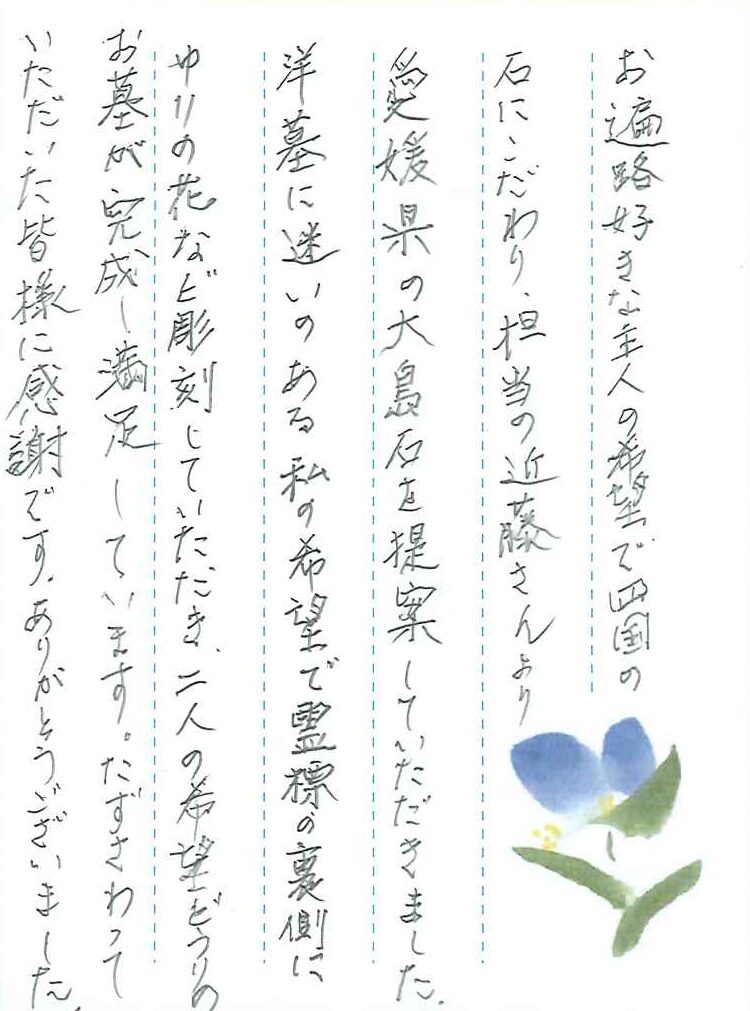 お遍路好きな主人の希望で四国の
石にこだわり、担当の近藤さんより
愛媛県の大島石を提案していただきました。
洋墓に迷いのある私の希望で霊標の裏側に
ゆりの花など彫刻していただき、二人の希望どうりの
お墓が完成し満足しています。たずさわって
いただいた皆様に感謝です。ありがとうございました。